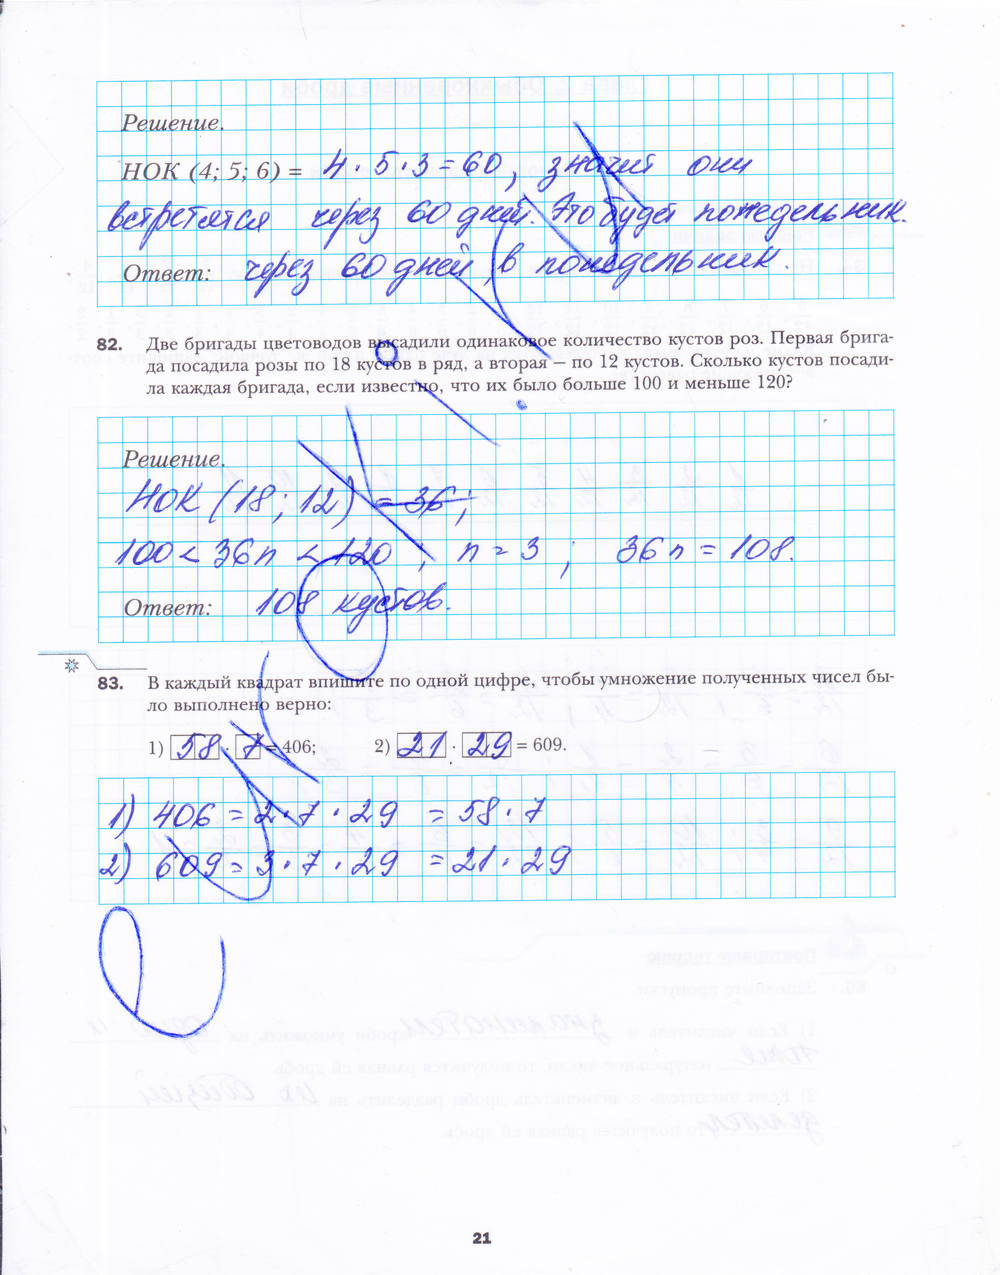 Решение.
НОК (4; 5; 6) = 4 · 5 · 3 = 60, значит они
встретятся через 60 дней. Это будет понедельник.
Ответ: через 60 дней, в понедельник.
82. Две бригады цветоводов высадили одинаковое количество кустов роз. Первая брига-
да посадила розы по 18 кустов в ряд, а вторая — по 12 кустов. Сколько кустов посади-
ла каждая бригада, если известно, что их было больше 100 и меньше 120?
Решение.
НОК (18; 12) = 36;
100 < 36n < 120; n = 3; 36n = 108.
Ответ: 108 кустов.
83. В каждый квадрат впишите по одной цифре, чтобы умножение полученных чисел бы-
ло выполнено верно:
1) 58 · 7 = 406; 2) 21 · 29 = 609.
1) 406 = 2 · 7 · 29 = 58 · 7
2) 609 = 3 · 7 · 29 = 21 · 29
21